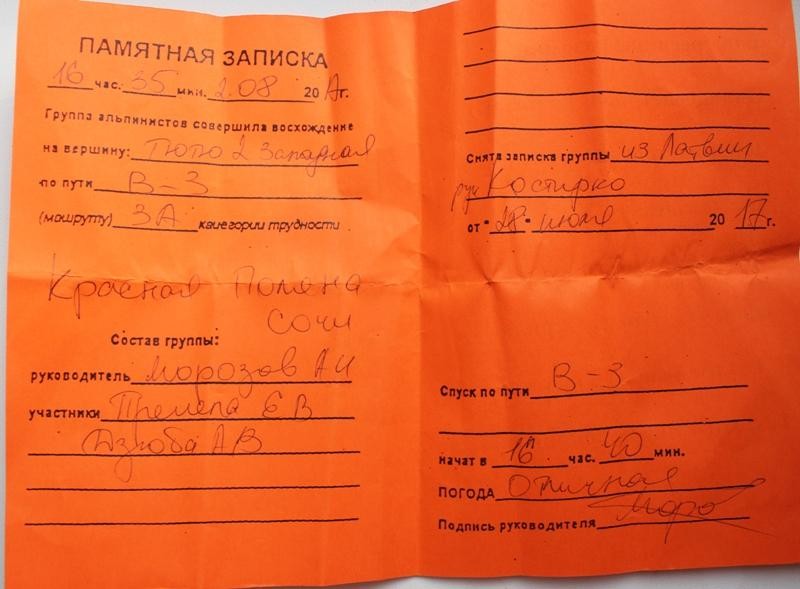 ПАМЯТНАЯ ЗАПИСКА
16 час. 35 мин. 2.08 2017г.
Группа альпинистов совершила восхождение
на вершину: 2 Западная
по пути В-3
(машруту) 3А категории трудности
Красная Поляна
Сочи
Состав группы:
руководитель Морозов АИ
участники ЕВ
Дзюба АВ
Снята записка группы из Латвии
рук Костирко
от "28" июля 2017г.
Спуск по пути В-3
начат в 16 час. 40 мин.
ПОГОДА Отличная
Подпись руководителя